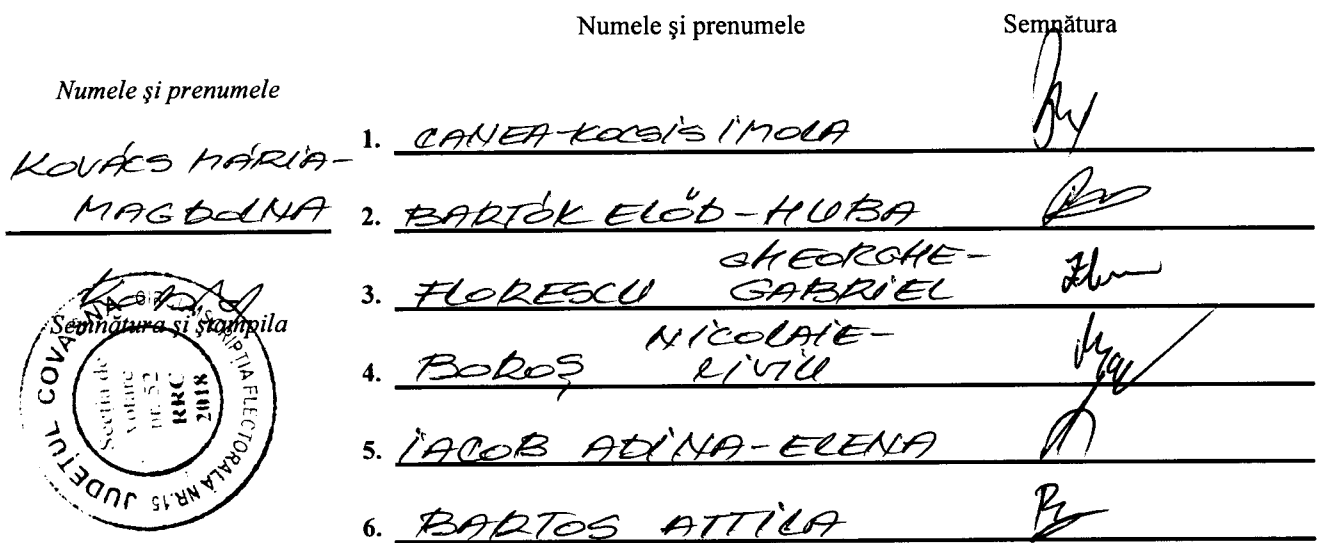 Numele şi prenumele Semnătura
Numele şi prenumele
KOVÁCS MÁRIA-
MAGDOLNA
Semnătura şi ştampila
JUDEŢUL COVASNA CIRCUMSCRIPŢIA ELECTORALĂ NR.15
Secţia de
Votare
nr. 52
RRC
2018
1. CANEA-KOCSIS IMOLA
2. BARTÓK ELŐD-HUBA
GHEORGHE-
3. FLORESCU GABRIEL
NICOLAIE-
4. BOROŞ LIVIU
5. IACOB ADINA-ELENA
6. BARTOS ATTILA